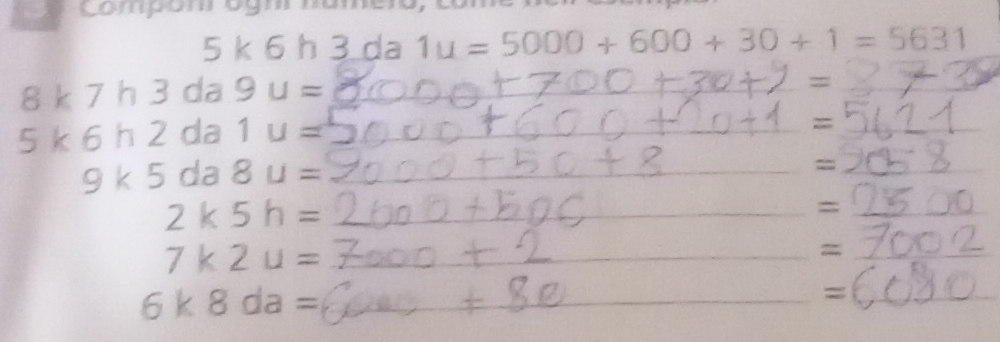 Componi ogni numero, come nell'esempio.
5 k 6 h 3 da 1u = 5000 + 600 + 30 + 1 = 5631
8 k 7 h 3 da 9 u = 8000 + 700 + 30 + 9 = 8739
5 k 6 h 2 da 1 u = 5000 + 600 + 20 + 1 = 5621
9 k 5 da 8 u = 9000 + 50 + 8 = 9058
2 k 5 h = 2000 + 500 = 2500
7 k 2 u = 7000 + 2 = 7002
6 k 8 da = 6000 + 80 = 6080